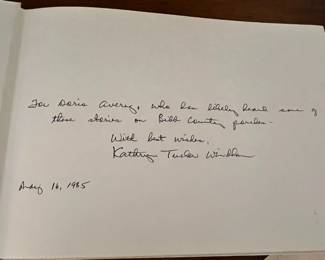 For Doris Avery, who has likely heard some of
these stories on Bibb County porches -
With best wishes,
Kathryn Tucker Windham
May 16, 1985